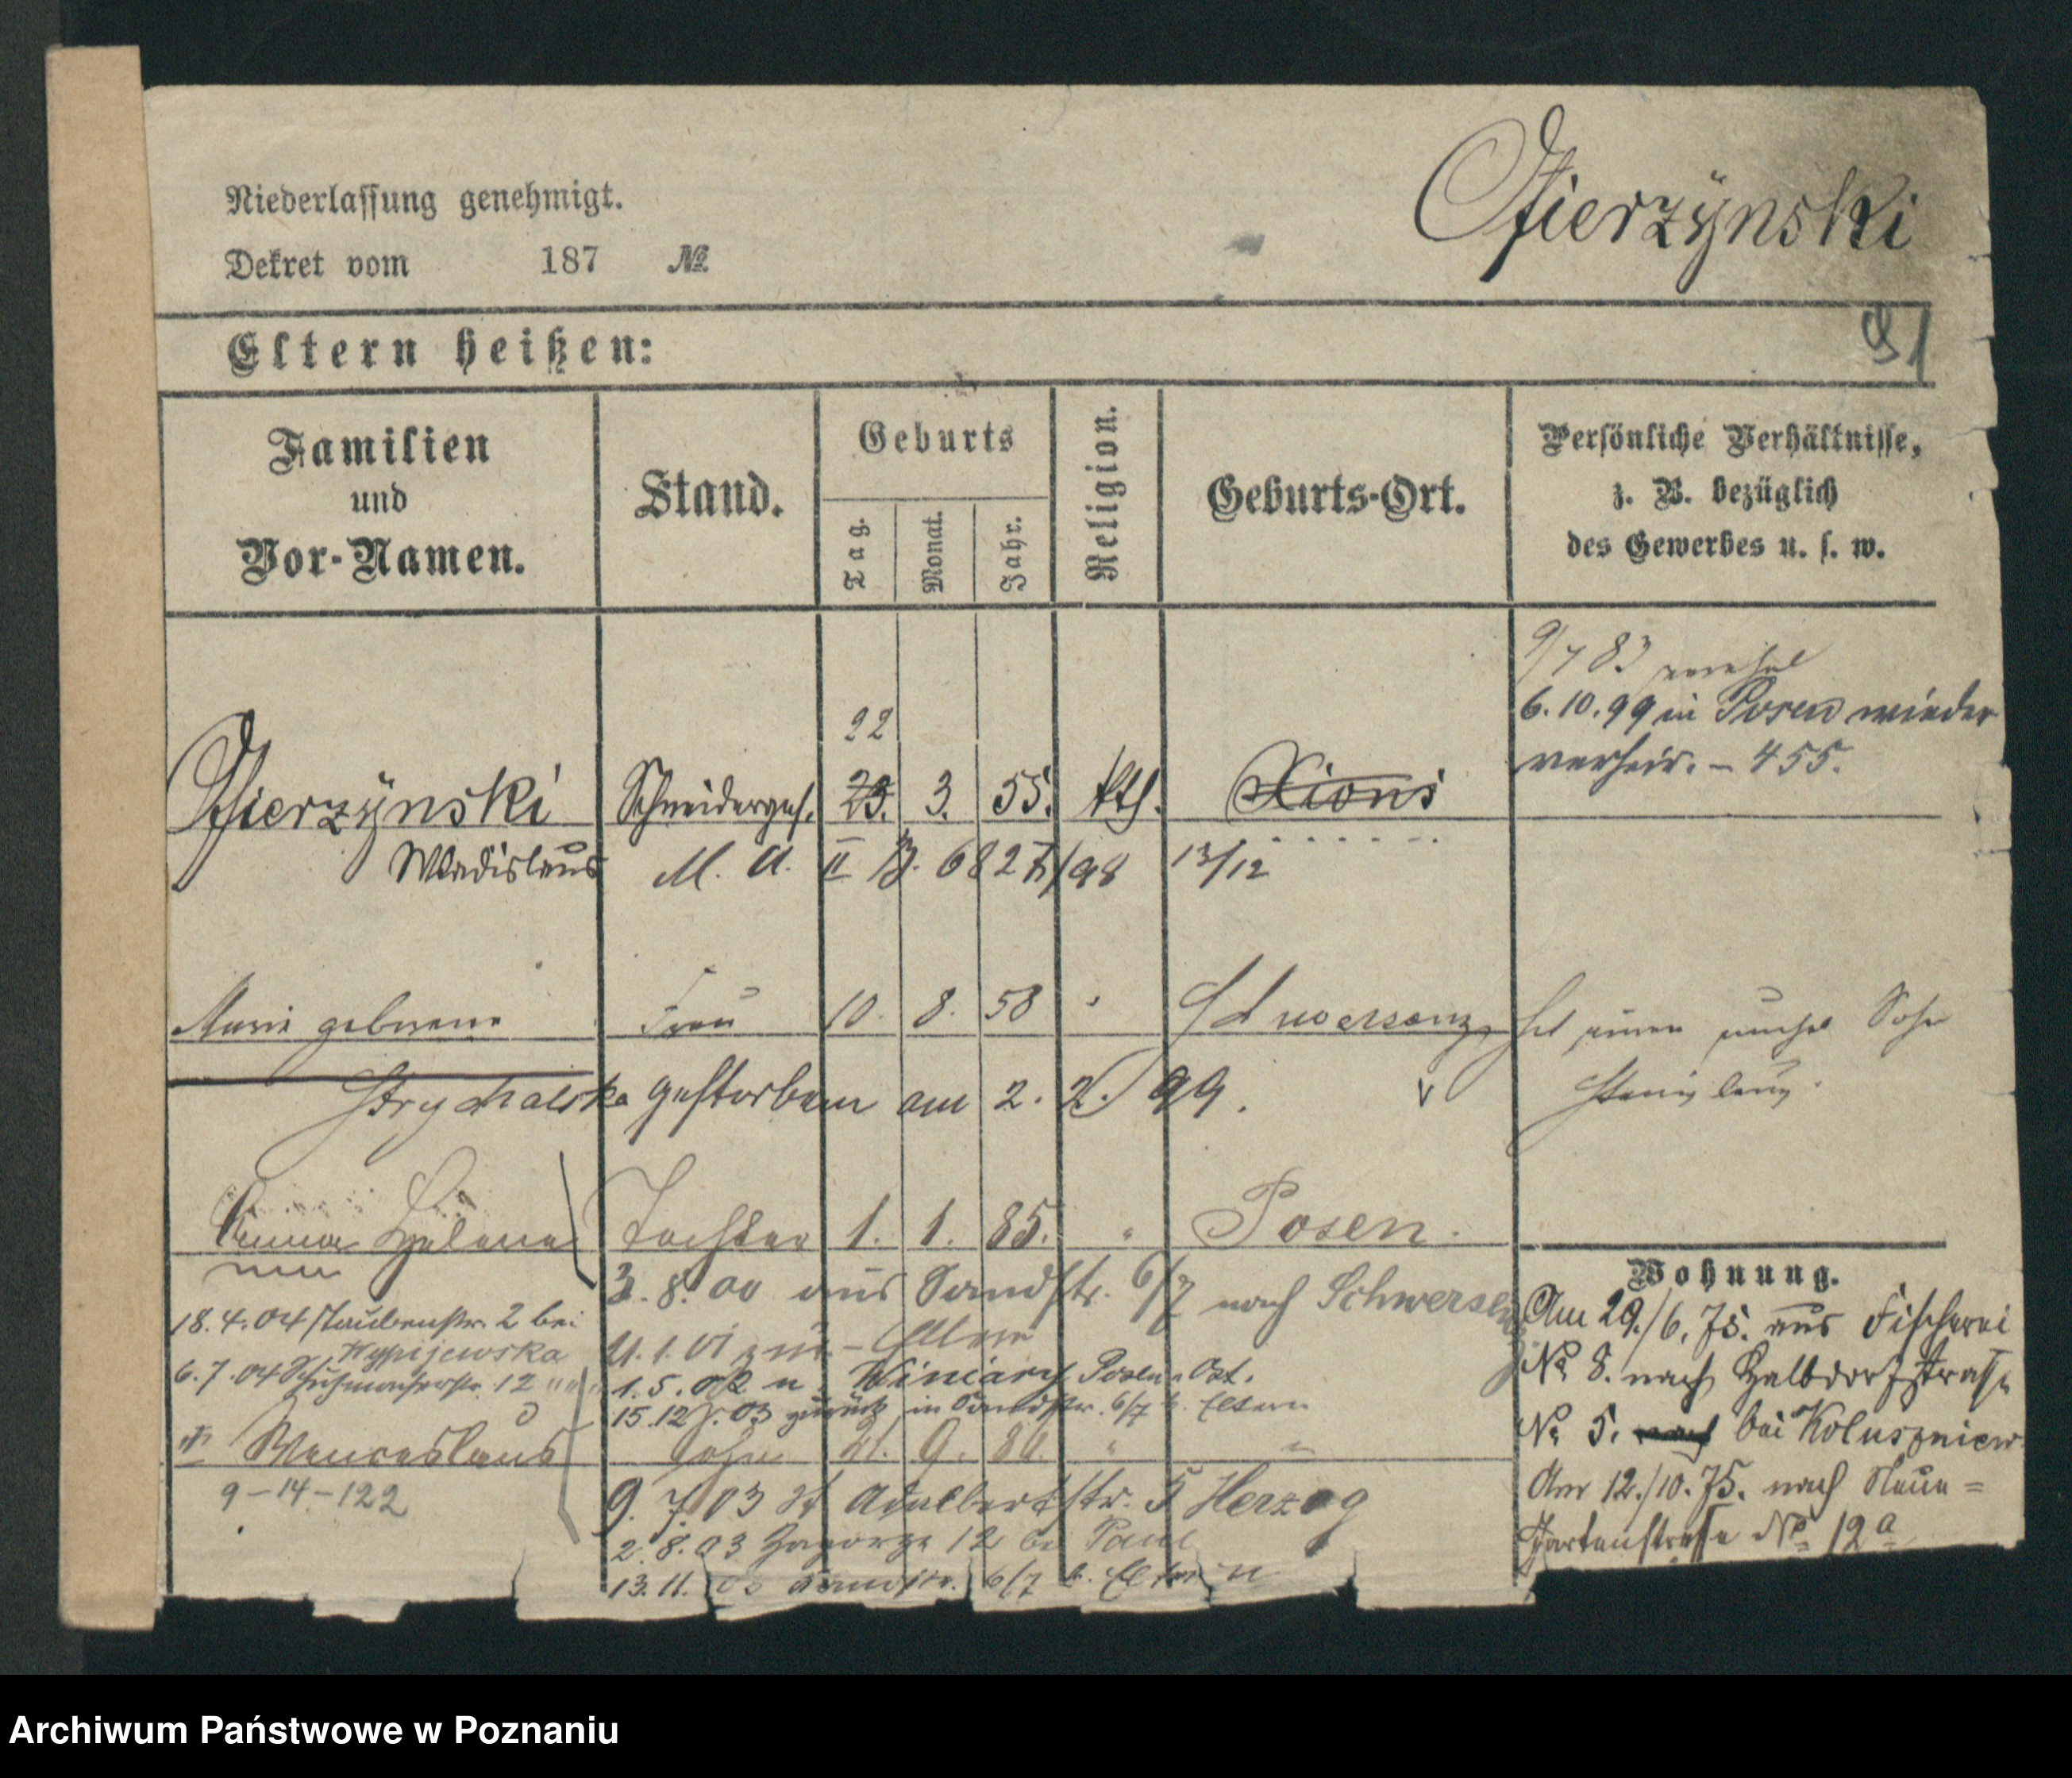 Ofierzÿnski
Niederlassung genehmigt.
Dekret vom 187 №
Eltern heißen:
91
Familien und Vor-Namen.
Stand.
Geburts
Tag.
Monat.
Jahr.
Religion.
Geburts-Ort.
Persönliche Verhältnisse,
z. B. bezüglich
des Gewerbes u. s. w.
9/7 83
6.10.99 in Posen wieder
verheir. - 455.
22
Ofierzÿnski Schneiderges. 23. 3. 55. kth. Xions
Wladislaus M. A. II B. 682 /98 13/12
Marie geborene Frau 10. 8. 58 Schwersenz
Strychalska gestorben am 2. 2. 99.
hat einen Sohn
Stanislaus.
Helena Tochter 1. 1. 85. " Posen.
3. 8. 00 aus Sandstr. 6/7 nach Schwersenz
18.4.04 Taubenstr. 2 bei
Hypijewska
11.1.01 Eltern
6.7.04 12
1.5.02 n. Winiary Posen Ost.
15.12.03 zurück in Sandstr. 6/7 b. Eltern
Wenceslaus Sohn 21. 9. 86. " "
9-14-122
9. 7. 03 St Adalbertstr. 5 Herzog
2.8.03 Zagorze 12 bei Paul
13.11. Sandstr. 6/7 b. Eltern
Wohnung.
Am 29./6. 75. aus Fischerei
№ 8. nach Halbdorfstraße
№ 5. bei Koluszniew
Am 12./10. 75. nach Neue-
Gartenstraße № 12a
Archiwum Państwowe w Poznaniu